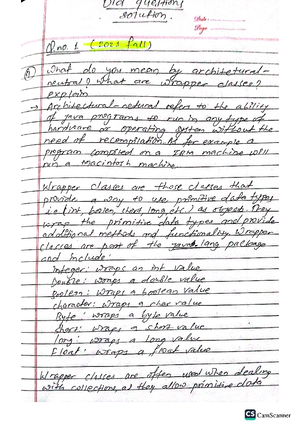 Old questions
solution.
Date:
Page
Q.no. 1 (2021 fall)
a) What do you mean by architectural-
neutral? What are wrapper classes?
Explain
→ Architectural-netural refers to the ability
of java programs to run in any type of
hardware or operating system without the
need of recompilation. for example a
program compiled on a IBM machine will
run a macintosh machine.
Wrapper classes are those classes that
provide a way to use primitive data types
(int, short, long, etc.) as objects. They
wrap the primitive data types and provide
additional methods and functionality. Wrapper
classes are part of the java.lang package
and include:
Integer: wraps an int value
Double: wraps a double value
Boolean: wraps a boolean value
Character: wraps a char value
Byte: wraps a byte value
short: wraps a short value
long: wraps a long value
Float: wraps a float value
Wrapper classes are often used when dealing
with collections, as they allow primitive data
CS CamScanner